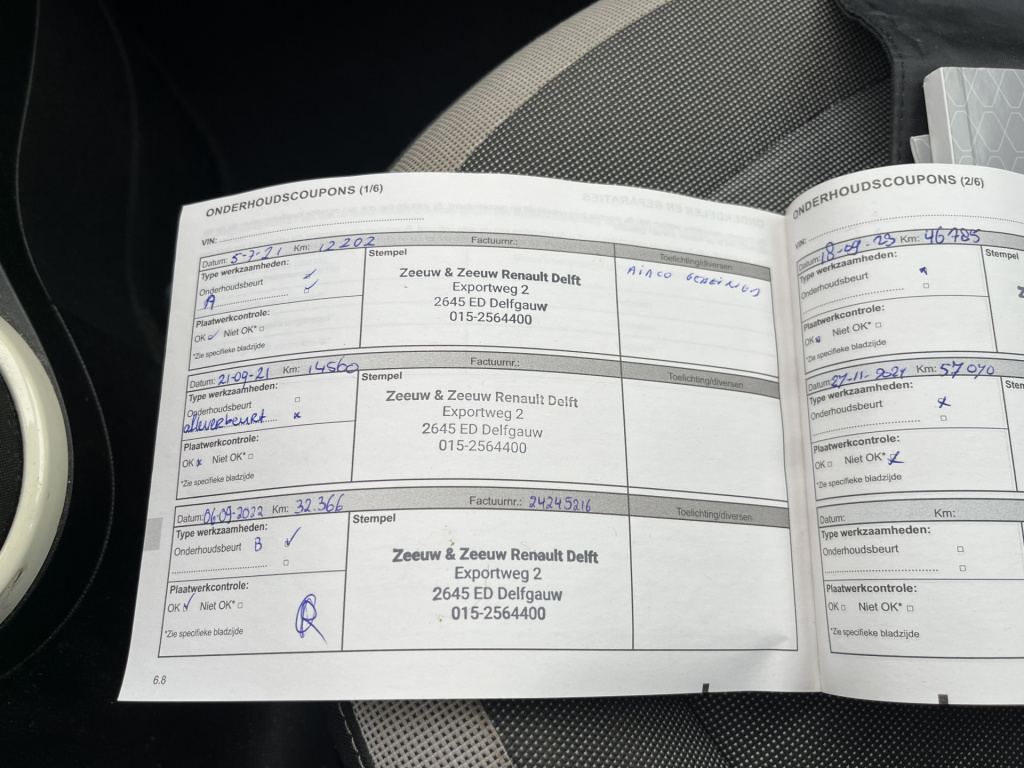 ONDERHOUDSCOUPONS (1/6)
VIN:
Datum: 5-7-21 Km: 12202 Factuurnr.:
Type werkzaamheden:
Onderhoudsbeurt
A
Plaatwerkcontrole:
OK Niet OK*
*Zie specifieke bladzijde
Stempel
Zeeuw & Zeeuw Renault Delft
Exportweg 2
2645 ED Delfgauw
015-2564400
Toelichting/diversen
AIRCO
Datum: 21-09-21 Km: 14560 Factuurnr.:
Type werkzaamheden:
Onderhoudsbeurt
Plaatwerkcontrole:
OK Niet OK*
*Zie specifieke bladzijde
Stempel
Zeeuw & Zeeuw Renault Delft
Exportweg 2
2645 ED Delfgauw
015-2564400
Toelichting/diversen
Datum: 06-09-2022 Km: 32.366 Factuurnr.: 24245216
Type werkzaamheden:
Onderhoudsbeurt B
Plaatwerkcontrole:
OK Niet OK*
*Zie specifieke bladzijde
Stempel
Zeeuw & Zeeuw Renault Delft
Exportweg 2
2645 ED Delfgauw
015-2564400
Toelichting/diversen
6.8
ONDERHOUDSCOUPONS (2/6)
VIN:
Datum: 18-09-23 Km: 46785
Type werkzaamheden:
Onderhoudsbeurt
Plaatwerkcontrole:
OK Niet OK*
*Zie specifieke bladzijde
Stempel
Datum: 27-11-2024 Km: 57070
Type werkzaamheden:
Onderhoudsbeurt
Plaatwerkcontrole:
OK Niet OK*
*Zie specifieke bladzijde
Stem
Datum: Km:
Type werkzaamheden:
Onderhoudsbeurt
Plaatwerkcontrole:
OK Niet OK*
*Zie specifieke bladzijde